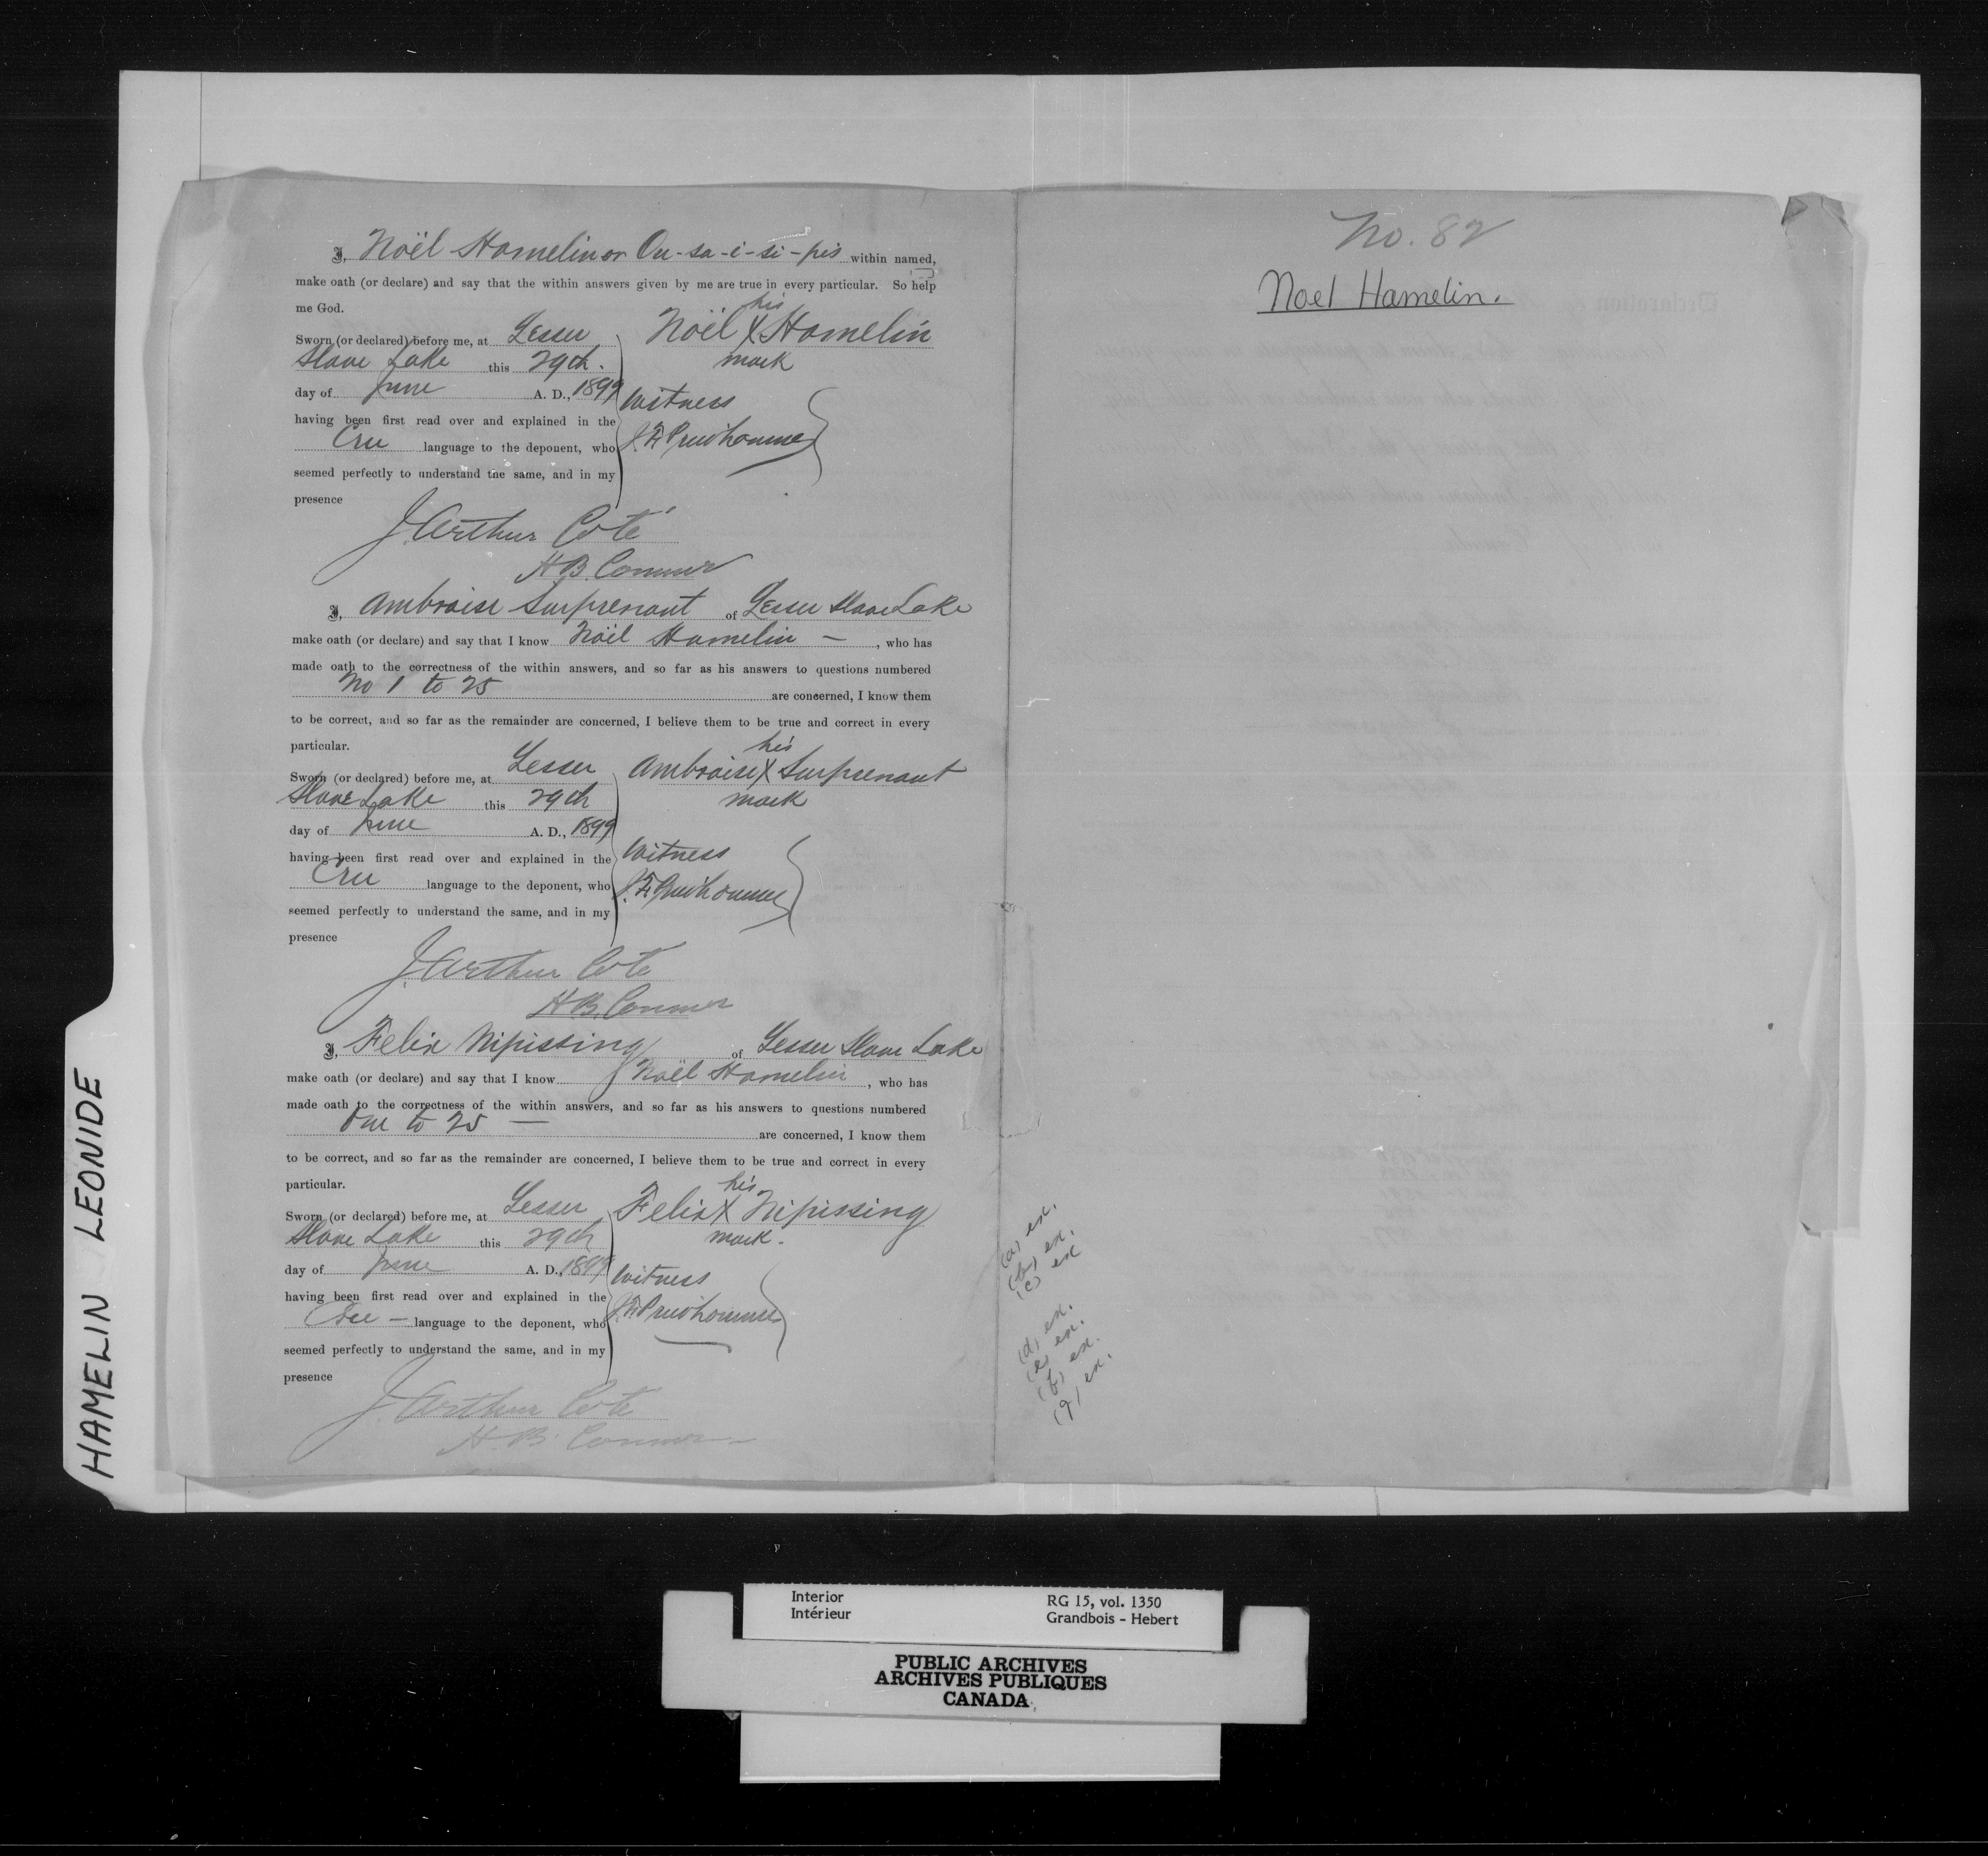 I, Noël Hamelin or Ou-sa-i-si-pis within named,
make oath (or declare) and say that the within answers given by me are true in every particular. So help
me God.
Sworn (or declared) before me, at Lesser
Slave Lake this 29th.
day of June A. D., 1899
having been first read over and explained in the
Cree language to the deponent, who
seemed perfectly to understand the same, and in my
presence
his
Noël X Hamelin
mark
Witness
J. F. Prud'homme
J. Arthur Coté
H B. Conner
I, Ambroise Surprenant of Lesser Slave Lake
make oath (or declare) and say that I know Noël Hamelin — , who has
made oath to the correctness of the within answers, and so far as his answers to questions numbered
No 1 to 25 are concerned, I know them
to be correct, and so far as the remainder are concerned, I believe them to be true and correct in every
particular.
Sworn (or declared) before me, at Lesser
Slave Lake this 29th
day of June A. D., 1899
having been first read over and explained in the
Cree language to the deponent, who
seemed perfectly to understand the same, and in my
presence
his
Ambroise X Surprenant
mark
Witness
J. F. Prud'homme
J. Arthur Coté
H B. Conner
I, Felix Nipissing of Lesser Slave Lake
make oath (or declare) and say that I know Noël Hamelin , who has
made oath to the correctness of the within answers, and so far as his answers to questions numbered
One to 25 — are concerned, I know them
to be correct, and so far as the remainder are concerned, I believe them to be true and correct in every
particular.
Sworn (or declared) before me, at Lesser
Slave Lake this 29th
day of June A. D., 1899
having been first read over and explained in the
Cree — language to the deponent, who
seemed perfectly to understand the same, and in my
presence
his
Felix X Nipissing
mark.
Witness
J. F. Prud'homme
J. Arthur Coté
H. B. Conner
No. 82
Noel Hamelin.
(a) ex.
(b) ex.
(c) ex
(d) ex.
(e) ex.
(f) ex.
(g) ex.
HAMELIN LEONIDE
Interior
Intérieur
RG 15, vol. 1350
Grandbois - Hebert
PUBLIC ARCHIVES
ARCHIVES PUBLIQUES
CANADA